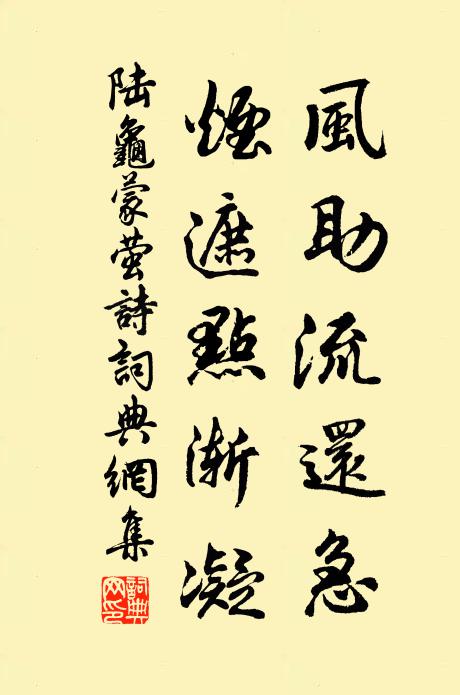 風助流還急
煙遮點漸凝
陸龜蒙螢詩詞典網集